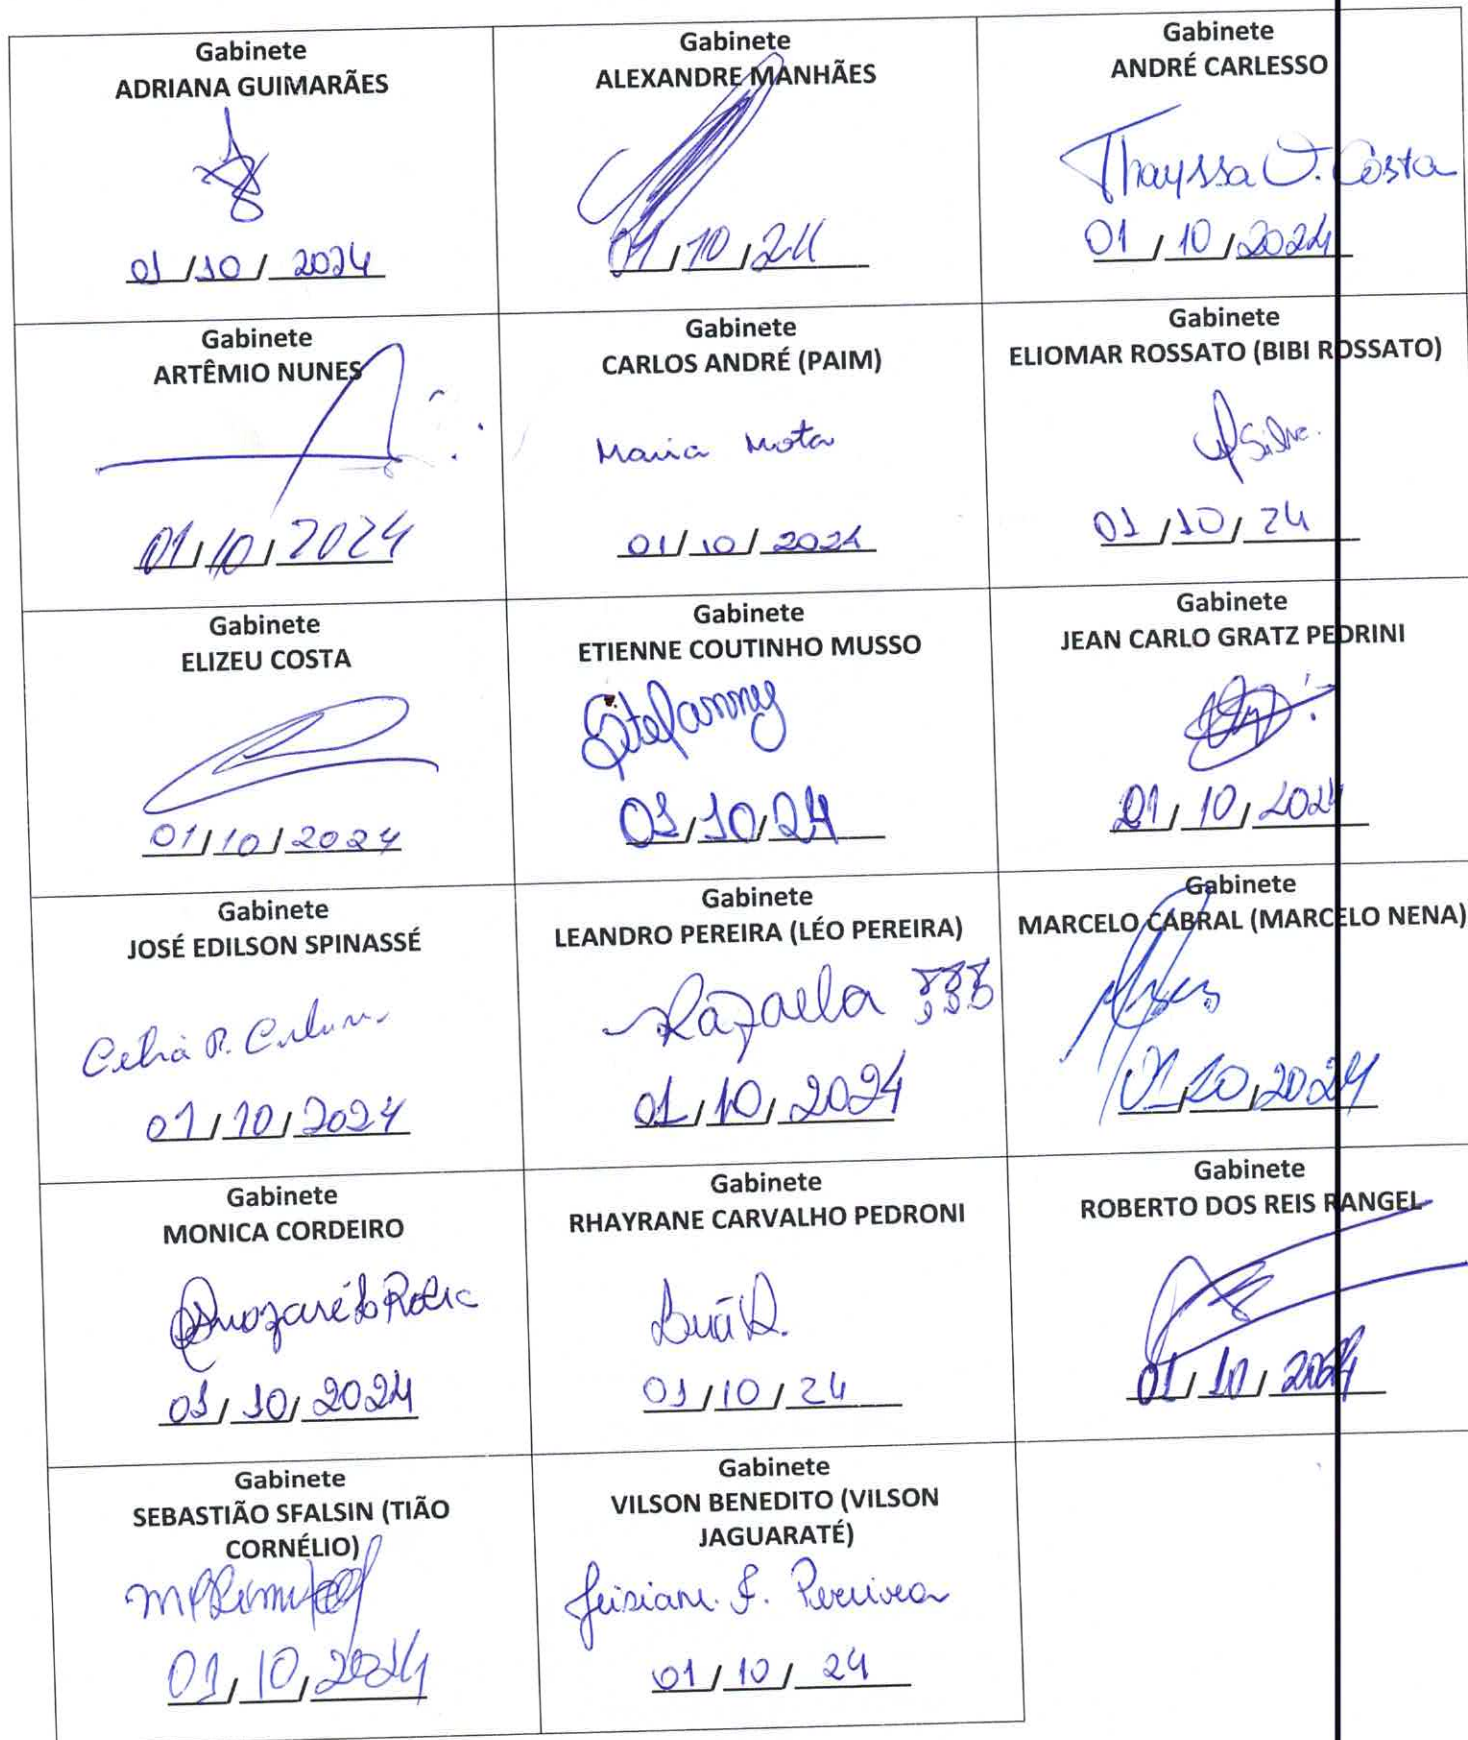 Gabinete
ADRIANA GUIMARÃES
01/10/2024
Gabinete
ALEXANDRE MANHÃES
01/10/24
Gabinete
ANDRÉ CARLESSO
Thayssa O. Costa
01/10/2024
Gabinete
ARTÊMIO NUNES
01/10/2024
Gabinete
CARLOS ANDRÉ (PAIM)
Maria Mota
01/10/2024
Gabinete
ELIOMAR ROSSATO (BIBI ROSSATO)
Silva
01/10/24
Gabinete
ELIZEU COSTA
01/10/2024
Gabinete
ETIENNE COUTINHO MUSSO
Stefanny
01/10/24
Gabinete
JEAN CARLO GRATZ PEDRINI
01/10/2024
Gabinete
JOSÉ EDILSON SPINASSÉ
01/10/2024
Gabinete
LEANDRO PEREIRA (LÉO PEREIRA)
Rafaela
01/10/2024
Gabinete
MARCELO CABRAL (MARCELO NENA)
01/10/2024
Gabinete
MONICA CORDEIRO
01/10/2024
Gabinete
RHAYRANE CARVALHO PEDRONI
01/10/24
Gabinete
ROBERTO DOS REIS RANGEL
01/10/2024
Gabinete
SEBASTIÃO SFALSIN (TIÃO
CORNÉLIO)
01/10/2024
Gabinete
VILSON BENEDITO (VILSON
JAGUARATÉ)
01/10/24